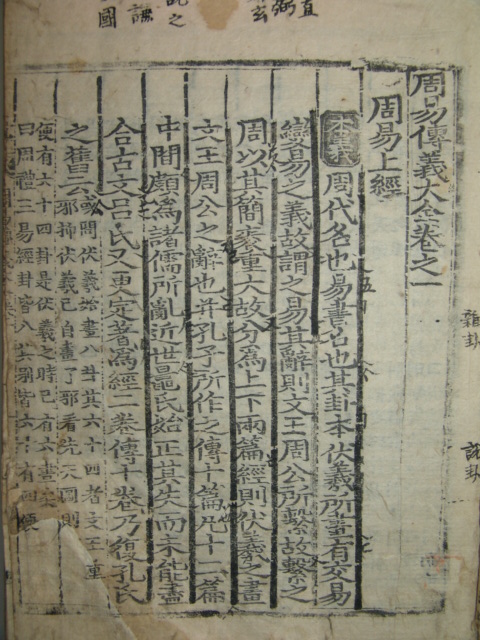 周易傳義大全卷之一
周易上經
本義 周代名也易書名也其卦本伏羲所畫有交易
變易之義故謂之易其辭則文王周公所繫故繫之
周以其簡袠重大故分爲上下兩篇經則伏羲之畫
文王周公之辭也幷孔子所作之傳十篇凡十二篇
中間頗爲諸儒所亂近世晁氏始正其失而未能盡
合古文呂氏又更定著爲經二卷傳十卷乃復孔氏
之舊云 或問伏羲始畫八卦其六十四者文王重
邪抑伏羲已自畫了邪看先天圖則
便有六十四卦是伏羲之時已有六畫
曰周禮三易經卦皆八別皆六十有四便
雜卦
說卦
直
國